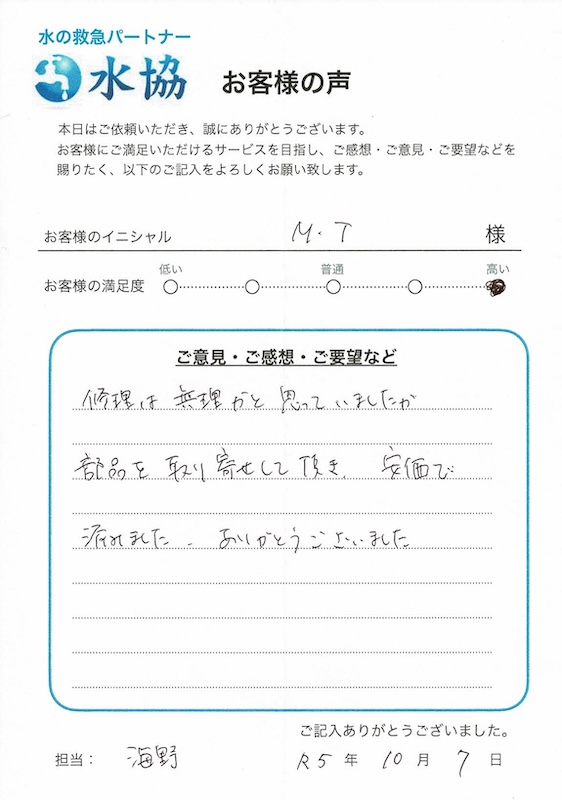 水の救急パートナー
水協 お客様の声
本日はご依頼いただき、誠にありがとうございます。
お客様にご満足いただけるサービスを目指し、ご感想・ご意見・ご要望などを
賜りたく、以下のご記入をよろしくお願い致します。
お客様のイニシャル M.T 様
低い 普通 高い
お客様の満足度
ご意見・ご感想・ご要望など
修理は無理かと思っていましたが
部品を取り寄せして頂き、安価で
済みました。ありがとうございました
ご記入ありがとうございました。
担当： 海野 R5 年 10 月 7 日